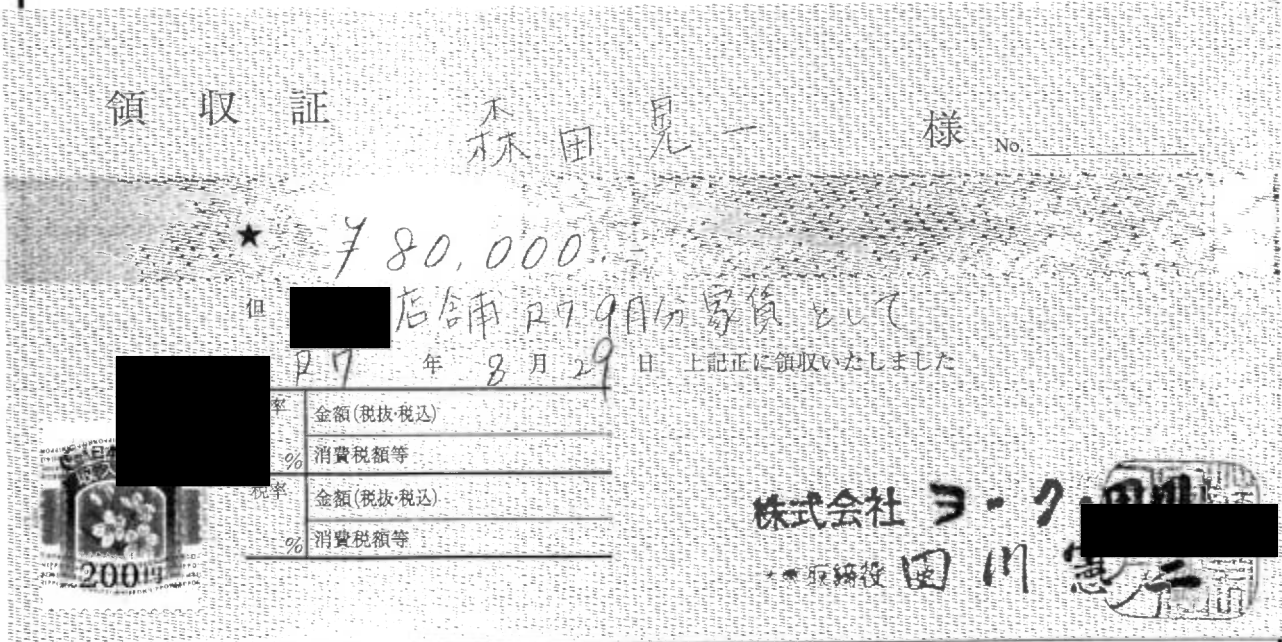 領収証 森田晃一 様 No.
★ ¥80,000.-
但 店舗R7 9月分家賃として
R7年8月29日 上記正に領収いたしました
率 金額(税抜・税込)
% 消費税額等
税率 金額(税抜・税込)
% 消費税額等
200円
株式会社 ヨーク
取締役 田川憲二